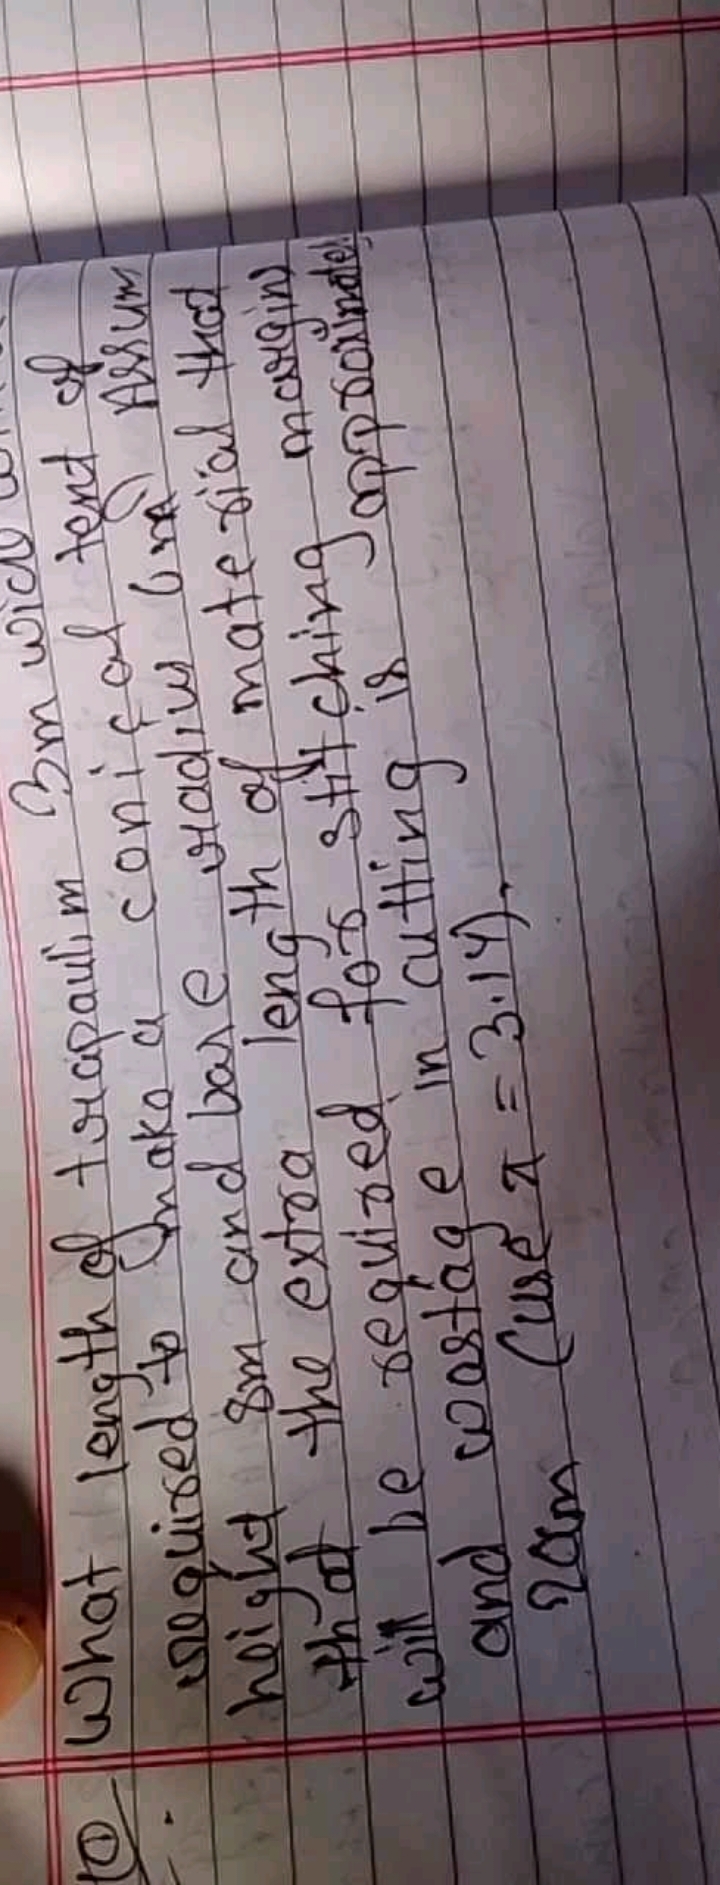 10 What length of trapaulim 3m wide will
required to make a conical tent of
height 8m and base radius 6m Assum
that the extra length of material that
will be required for stitching margin
and wastage in cutting is approximately
20cm (use π = 3.14).